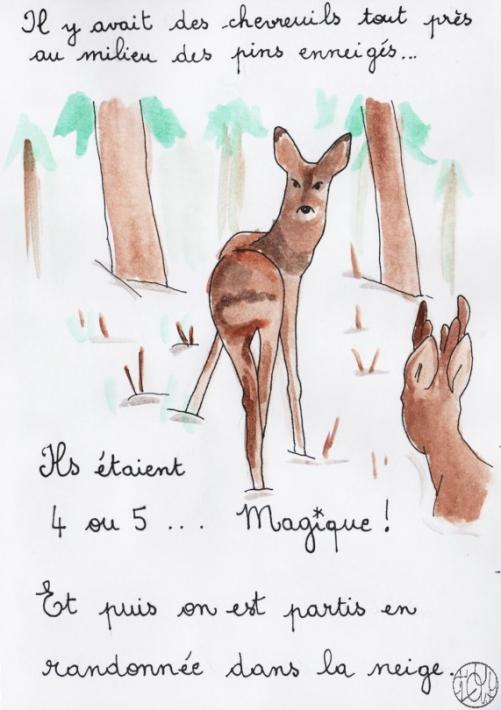 Il y avait des chevreuils tout près
au milieu des pins enneigés...
Ils étaient
4 ou 5 .... Magique !
Et puis on est partis en
randonnée dans la neige.